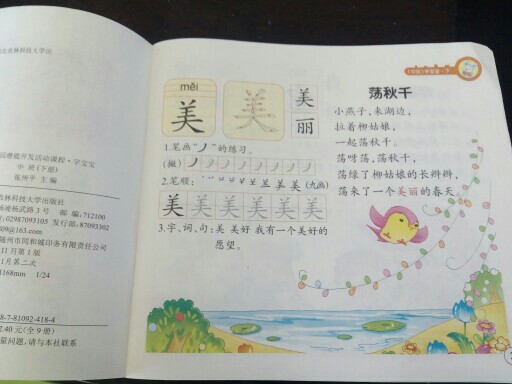 农林科技大学出
园潜能开发活动课程·学宝宝
中班(下册)
张炳平 主编
农林科技大学出版社
杨凌杨武路3号 邮编,712100
:02987093105 发行部:87093302
09@163.com
随州市同和诚印务有限责任公司
11月第1版
1月第二次
168mm 1/24
8-7-81092-418-4
2.40元(全9册)
量问题,请与本社联系
měi
美
美
美
丽
1.笔画"丿"的练习。
(撇)丿丿丿丿丿丿丿
2.笔顺:
美(九画)
美美美美美美
3.字、词、句:美 美好 我有一个美好的
愿望。
荡秋千
小燕子,来湖边,
拉着柳姑娘,
一起荡秋千。
荡呀荡,荡秋千,
荡绿了柳姑娘的长辫辫,
荡来了一个美丽的春天。